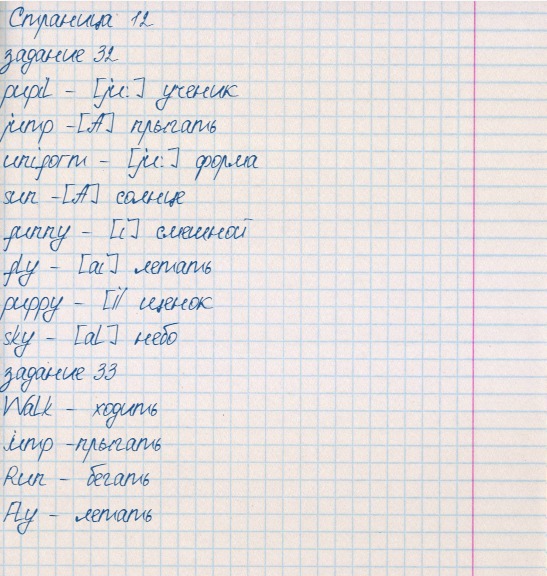 Страница 12
задание 32
pupil - [ju:] ученик
jump - [Λ] прыгать
uniform - [ju:] форма
sun - [Λ] солнце
funny - [i] смешной
fly - [ai] летать
puppy - [i] щенок
sky - [ai] небо
задание 33
Walk - ходить
jump - прыгать
Run - бегать
Fly - летать